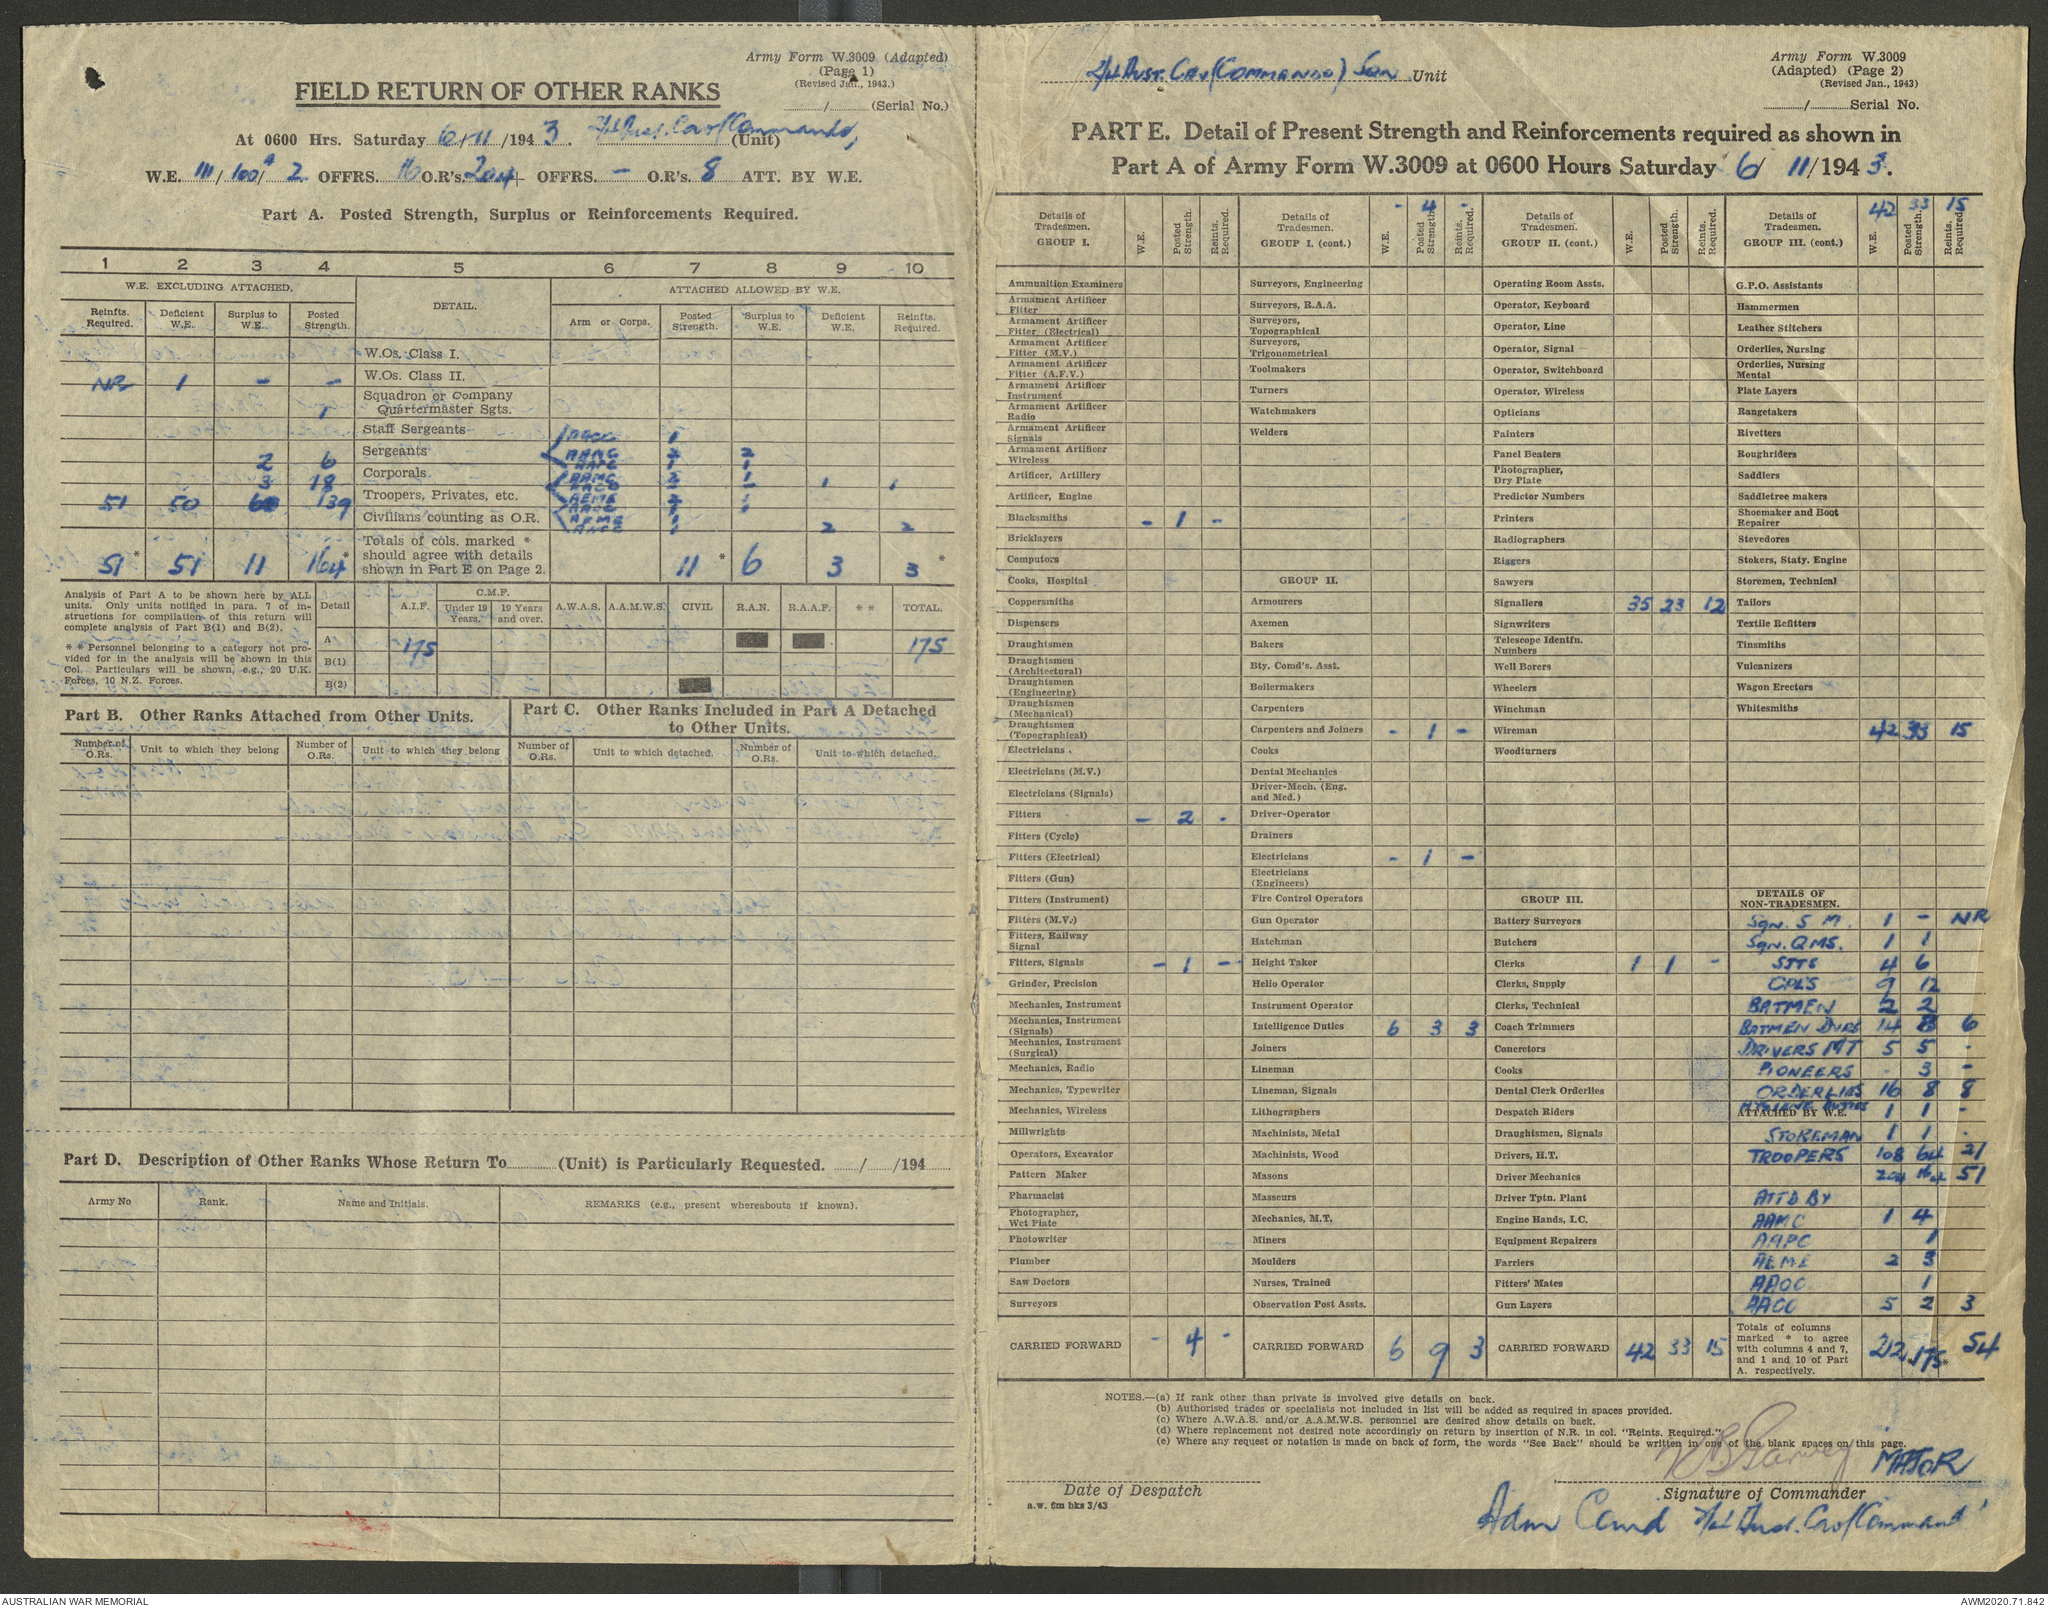 Army Form W.3009 (Adapted)
(Page 1)
(Revised Jan., 1943.)
FIELD RETURN OF OTHER RANKS
/ (Serial No.)
At 0600 Hrs. Saturday 6/11/1943. 2/4 Aust. Cav (Commando) (Unit)
W.E. III/100A/2 OFFRS. 16 O.R's. 204 + OFFRS. - O.R's. 8 ATT. BY W.E.
Part A. Posted Strength, Surplus or Reinforcements Required.
1 2 3 4 5 6 7 8 9 10
W.E. EXCLUDING ATTACHED. DETAIL. ATTACHED ALLOWED BY W.E.
Reinfts. Required. Deficient W.E. Surplus to W.E. Posted Strength. Arm or Corps. Posted Strength. Surplus to W.E. Deficient W.E. Reinfts. Required.
W.Os. Class I.
NR 1 - - W.Os. Class II.
1 Squadron or Company Quartermaster Sgts.
Staff Sergeants
2 6 Sergeants
3 18 Corporals
51 50 6 139 Troopers, Privates, etc.
Civilians counting as O.R.
51 * 51 11 164 * Totals of cols. marked * should agree with details shown in Part E on Page 2. 11 * 6 3 3 *
Analysis of Part A to be shown here by ALL units. Only units notified in para. 7 of instructions for compilation of this return will complete analysis of Part B(1) and B(2).
* * Personnel belonging to a category not provided for in the analysis will be shown in this Col. Particulars will be shown, e.g., 20 U.K. Forces, 10 N.Z. Forces.
Detail A.I.F. C.M.F. Under 19 Years. 19 Years and over. A.W.A.S. A.A.M.W.S. CIVIL R.A.N. R.A.A.F. * * TOTAL.
A 175 175
B(1)
B(2)
Part B. Other Ranks Attached from Other Units.
Number of O.Rs. Unit to which they belong Number of O.Rs. Unit to which they belong
Part C. Other Ranks Included in Part A Detached to Other Units.
Number of O.Rs. Unit to which detached. Number of O.Rs. Unit to which detached.
Part D. Description of Other Ranks Whose Return To (Unit) is Particularly Requested. / /194
Army No Rank. Name and Initials. REMARKS (e.g., present whereabouts if known).
2/4 Aust. Cav (Commando) Sqn Unit
Army Form W.3009
(Adapted) (Page 2)
(Revised Jan., 1943)
/ Serial No.
PART E. Detail of Present Strength and Reinforcements required as shown in
Part A of Army Form W.3009 at 0600 Hours Saturday 6/11/1943.
Details of Tradesmen. GROUP I. W.E. Posted Strength. Reints. Required.
Ammunition Examiners
Armament Artificer Fitter
Armament Artificer Fitter (Electrical)
Armament Artificer Fitter (M.V.)
Armament Artificer Fitter (A.F.V.)
Armament Artificer Instrument
Armament Artificer Radio
Armament Artificer Signals
Armament Artificer Wireless
Artificer, Artillery
Artificer, Engine
Blacksmiths - 1 -
Bricklayers
Computors
Cooks, Hospital
Coppersmiths
Dispensers
Draughtsmen
Draughtsmen (Architectural)
Draughtsmen (Engineering)
Draughtsmen (Mechanical)
Draughtsmen (Topographical)
Electricians
Electricians (M.V.)
Electricians (Signals)
Fitters - 2 -
Fitters (Cycle)
Fitters (Electrical)
Fitters (Gun)
Fitters (Instrument)
Fitters (M.V.)
Fitters, Railway Signal
Fitters, Signals - 1 -
Grinder, Precision
Mechanics, Instrument
Mechanics, Instrument (Signals)
Mechanics, Instrument (Surgical)
Mechanics, Radio
Mechanics, Typewriter
Mechanics, Wireless
Millwrights
Operators, Excavator
Pattern Maker
Pharmacist
Photographer, Wet Plate
Photowriter
Plumber
Saw Doctors
Surveyors
CARRIED FORWARD - 4 -
Details of Tradesmen. GROUP I. (cont.) W.E. - Posted Strength. 4 Reints. Required. -
Surveyors, Engineering
Surveyors, R.A.A.
Surveyors, Topographical
Surveyors, Trigonometrical
Toolmakers
Turners
Watchmakers
Welders
GROUP II.
Armourers
Axemen
Bakers
Bty. Comd's. Asst.
Boilermakers
Carpenters
Carpenters and Joiners - 1 -
Cooks
Dental Mechanics
Driver-Mech. (Eng. and Med.)
Driver-Operator
Drainers
Electricians - 1 -
Electricians (Engineers)
Fire Control Operators
Gun Operator
Hatchman
Height Taker
Helio Operator
Instrument Operator
Intelligence Duties 6 3 3
Joiners
Lineman
Lineman, Signals
Lithographers
Machinists, Metal
Machinists, Wood
Masons
Masseurs
Mechanics, M.T.
Miners
Moulders
Nurses, Trained
Observation Post Assts.
CARRIED FORWARD 6 9 3
Details of Tradesmen. GROUP II. (cont.) W.E. Posted Strength. Reints. Required.
Operating Room Assts.
Operator, Keyboard
Operator, Line
Operator, Signal
Operator, Switchboard
Operator, Wireless
Opticians
Painters
Panel Beaters
Photographer, Dry Plate
Predictor Numbers
Printers
Radiographers
Riggers
Sawyers
Signallers 35 23 12
Signwriters
Telescope Identfn. Numbers
Well Borers
Wheelers
Winchman
Wireman
Woodturners
GROUP III.
Battery Surveyors
Butchers
Clerks 1 1 -
Clerks, Supply
Clerks, Technical
Coach Trimmers
Concretors
Cooks
Dental Clerk Orderlies
Despatch Riders
Draughtsmen, Signals
Drivers, H.T.
Driver Mechanics
Driver Tptn. Plant
Engine Hands, I.C.
Equipment Repairers
Farriers
Fitters' Mates
Gun Layers
CARRIED FORWARD 42 33 15
Details of Tradesmen. GROUP III. (cont.) W.E. 42 Posted Strength. 33 Reints. Required. 15
G.P.O. Assistants
Hammermen
Leather Stitchers
Orderlies, Nursing
Orderlies, Nursing Mental
Plate Layers
Rangetakers
Rivetters
Roughriders
Saddlers
Saddletree makers
Shoemaker and Boot Repairer
Stevedores
Stokers, Staty. Engine
Storemen, Technical
Tailors
Textile Refitters
Tinsmiths
Vulcanizers
Wagon Erectors
Whitesmiths
42 33 15
DETAILS OF NON-TRADESMEN.
Sqn. S M. 1 - NR
Sqn. QMS. 1 1
SJTS 4 6
CPL'S 9 12
BATMEN 2 2
BATMEN DVRS 14 8 6
DRIVERS MT 5 5 -
PIONEERS - 3 -
ORDERLIES 16 8 8
ATTACHED BY W.E.
HYGIENE DUTIES 1 1 -
STOREMAN 1 1 -
TROOPERS 108 64 21
204 164 51
ATTD BY
AAMC 1 4
AAPC 1
AEME 2 3
AAOC 1
AACC 5 2 3
Totals of columns marked * to agree with columns 4 and 7, and 1 and 10 of Part A. respectively. 212 *175* 54
NOTES.—(a) If rank other than private is involved give details on back.
(b) Authorised trades or specialists not included in list will be added as required in spaces provided.
(c) Where A.W.A.S. and/or A.A.M.W.S. personnel are desired show details on back.
(d) Where replacement not desired note accordingly on return by insertion of N.R. in col. "Reints. Required."
(e) Where any request or notation is made on back of form, the words "See Back" should be written in one of the blank spaces on this page.
KB Garvey MAJOR
Date of Despatch
Signature of Commander
a.w. 6m bks 3/43
Adm Comd 2/4 Aust. Cav (Command
AUSTRALIAN WAR MEMORIAL
AWM2020.71.842